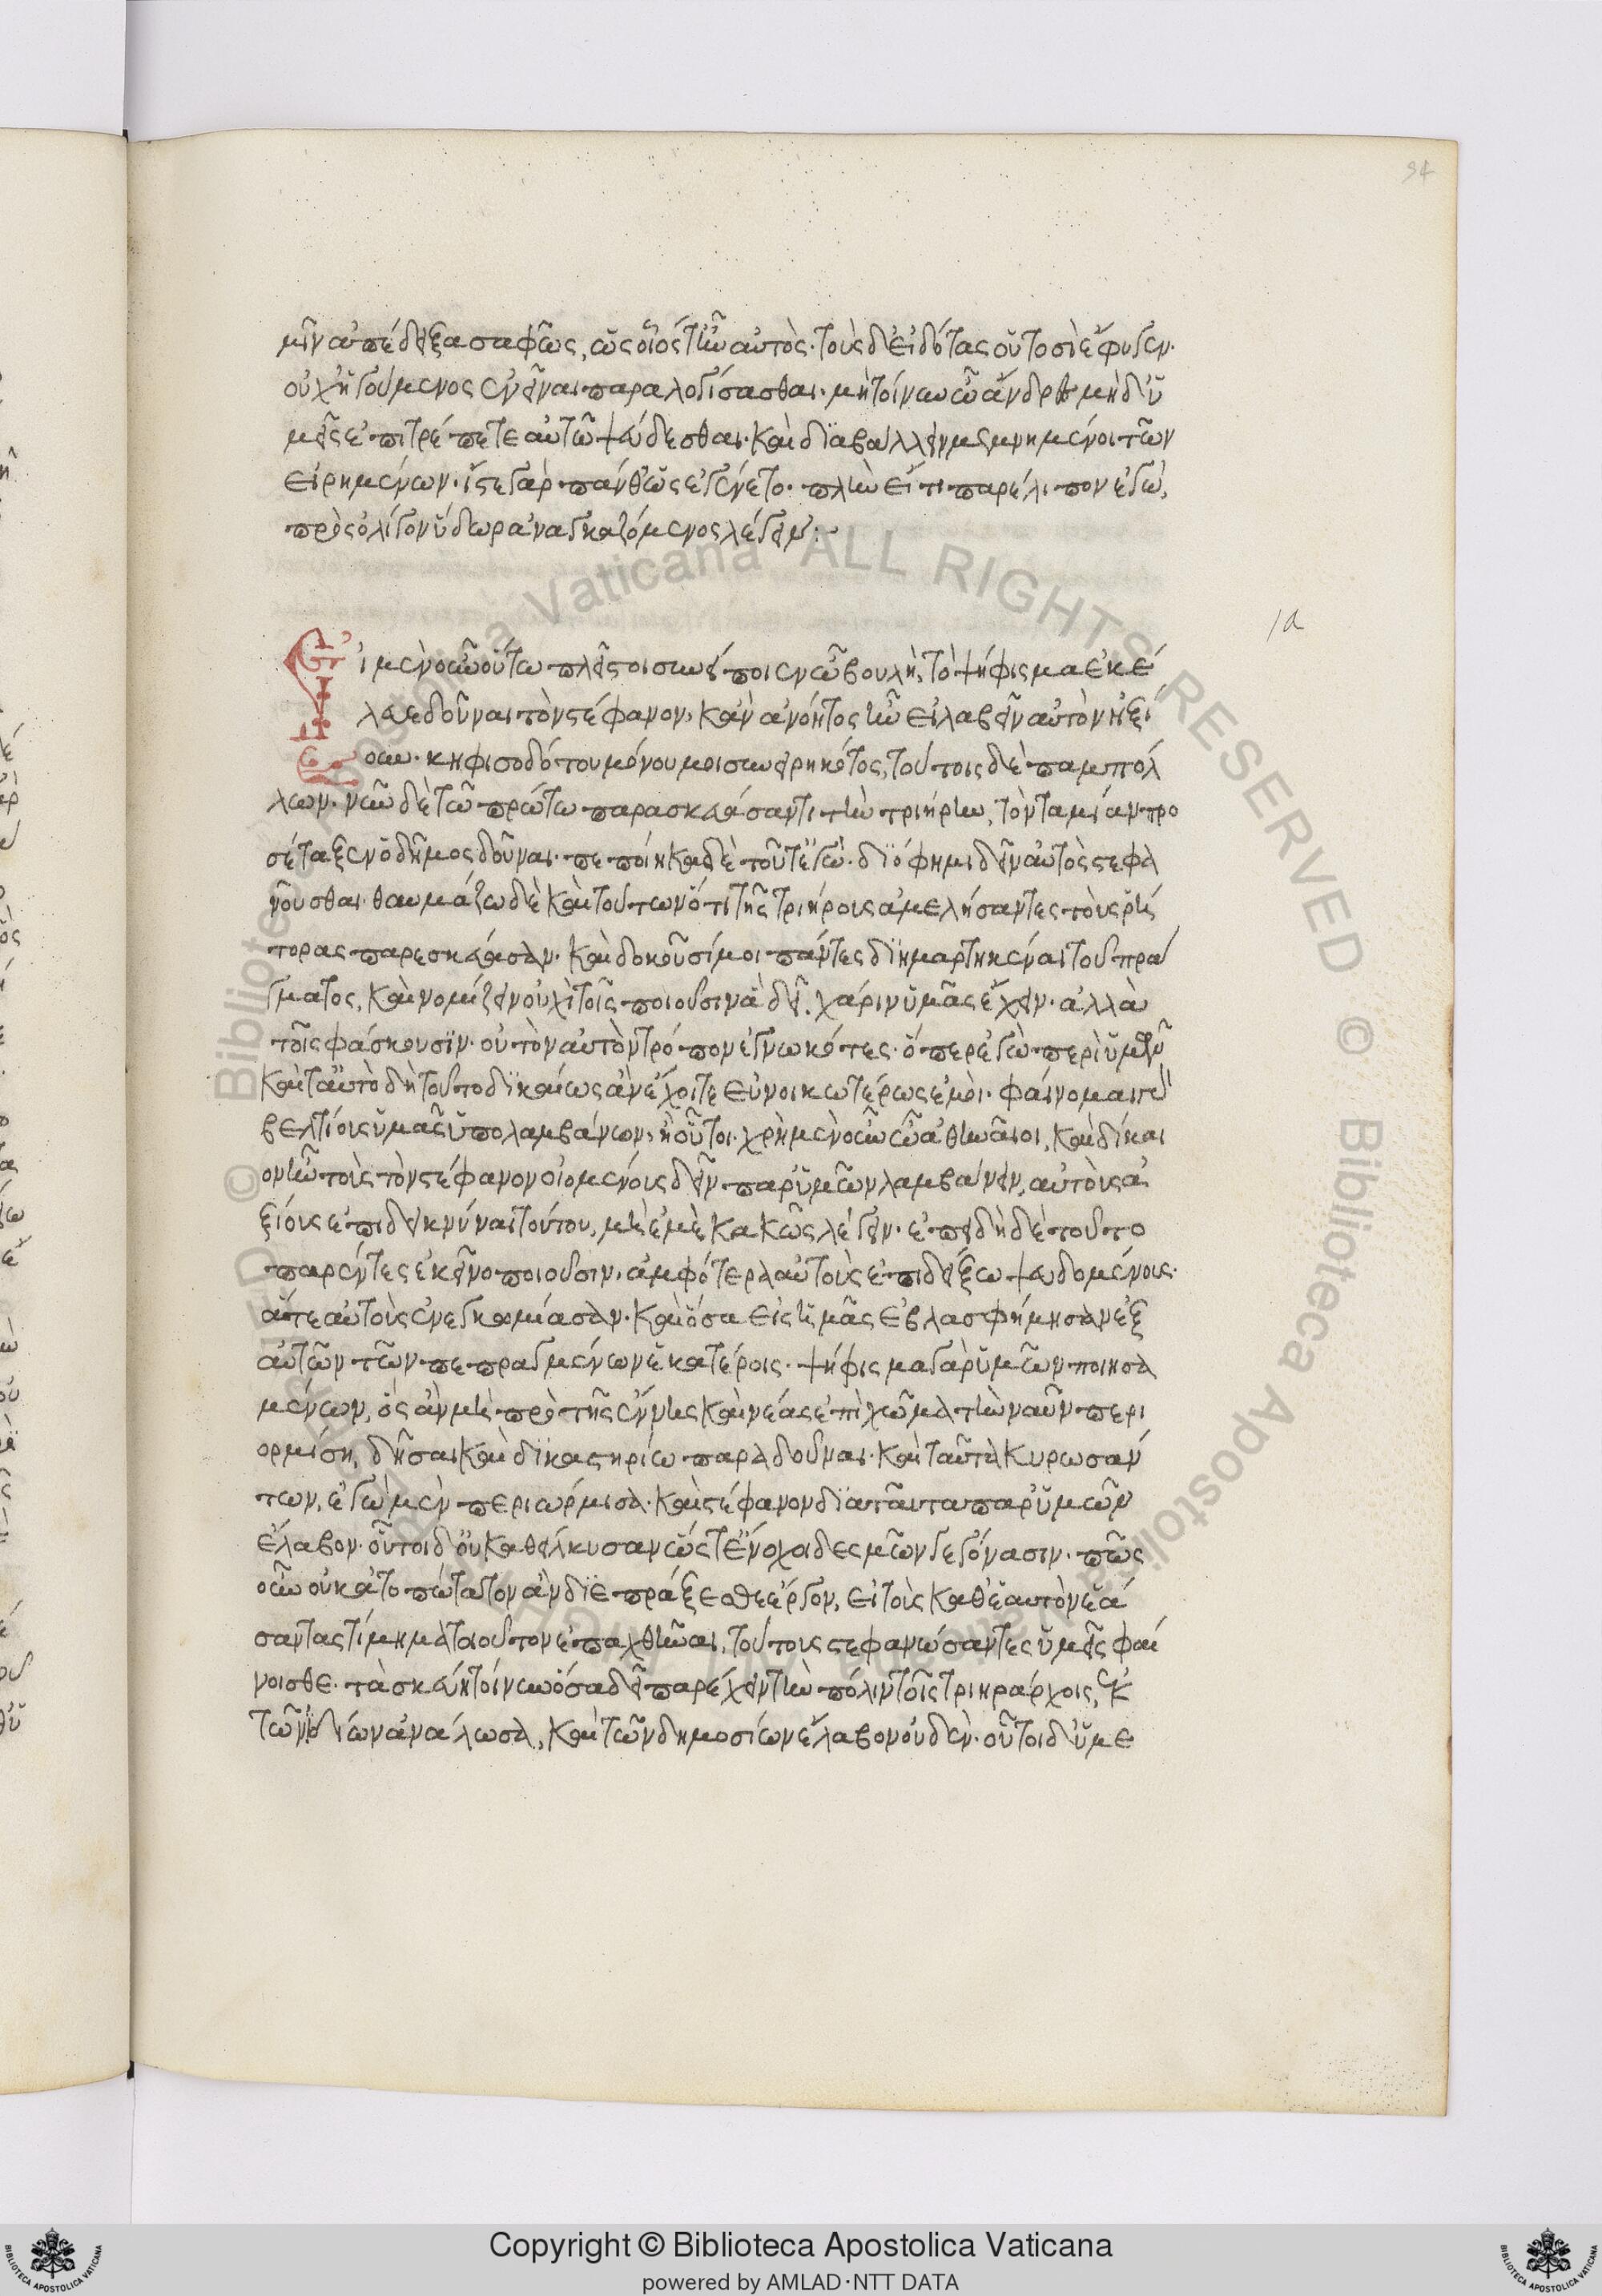 94
μῖν ἀπέδειξα σαφῶς, ὡς οἷός τ' ἦν αὐτός· τοὺς δ' εἰδότας οὑτοσὶ ἔφυγεν·
οὐχ ἡγούμενος ἐνεῖναι παραλογίσασθαι· μὴ τοίνυν ὦ ἄνδρες μηδ' ὑ
μεῖς ἐπιτρέπετε αὐτῷ ψεύδεσθαι· καὶ διαβάλλειν μεμνημένοι τῶν
εἰρημένων· ἴστε γὰρ πάνθ' ὡς ἐγένετο· πλὴν εἴ τι παρέλιπον ἐγώ,
πρὸς ὀλίγον ὕδωρ ἀναγκαζόμενος λέγειν :
ια
Εἰ μὲν οὖν ὅτῳ πλεῖστοι συνείποιεν ὦ βουλή, τὸ ψήφισμα ἐκέ
λευε δοῦναι τὸν στέφανον, κἂν ἀνόητος ἦν εἰ λαβεῖν αὐτὸν ἠξί
ουν· κηφισοδότου μόνου μοι συνειρηκότος, τούτοις δὲ παμπόλ
λων· νῦν δὲ τῷ πρώτῳ παρασκευάσαντι τὴν τριήρη, τὸν ταμίαν προ
σέταξεν ὁ δῆμος δοῦναι· πεποίηκα δὲ τοῦτ' ἐγώ· διό φημι δεῖν αὐτὸς στεφα
νοῦσθαι· θαυμάζω δὲ καὶ τούτων ὅτι τῆς τριήρους ἀμελήσαντες τοὺς ῥή
τορας παρεσκεύασαν· καὶ δοκοῦσί μοι πάντες διημαρτηκέναι τοῦ πρά
γματος, καὶ νομίζειν οὐχὶ τοῖς ποιοῦσιν ἃ δεῖ, χάριν ὑμᾶς ἔχειν· ἀλλὰ
τοῖς φάσκουσιν· οὐ τὸν αὐτὸν τρόπον ἐγνωκότες· ὅπερ ἐγὼ περὶ ὑμῶν
καὶ ταὐτὸ δὴ τοῦτο δικαίως ἂν ἔχοιτε εὐνοικωτέρως ἐμοί· φαίνομαι γὰρ
βελτίους ὑμᾶς ὑπολαμβάνων, ἢ οὗτοι· χρὴ μὲν οὖν ὦ ἀθηναῖοι, καὶ δίκαι
ον ἦν τοὺς τὸν στέφανον οἰομένους δεῖν παρ' ὑμῶν λαμβάνειν, αὐτοὺς ἀ
ξίους ἐπιδεικνύναι τούτου, μὴ ἐμὲ κακῶς λέγειν· ἐπειδὴ δὲ τοῦτο
παρέντες ἐκεῖνο ποιοῦσιν, ἀμφότερα αὐτοὺς ἐπιδείξω ψευδομένους·
ἅ τε αὑτοὺς ἐνεγκωμίασαν· καὶ ὅσα εἰς ἡμᾶς ἐβλασφήμησαν ἐξ
αὐτῶν τῶν πεπραγμένων ἑκατέροις· ψήφισμα γὰρ ὑμῶν ποιησα
μένων, ὃς ἂν μὴ πρὸ τῆς ἕνης καὶ νέας ἐπὶ χῶμα τὴν ναῦν περι
ορμίσῃ, δῆσαι καὶ δικαστηρίῳ παραδοῦναι· καὶ ταῦτα κυρωσάν
των, ἐγὼ μὲν περιώρμισα· καὶ στέφανον διὰ ταῦτα παρ' ὑμῶν
ἔλαβον· οὗτοι δ' οὐ καθείλκυσαν ὥστε ἔνοχοι δεσμῶν γεγόνασιν· πῶς
οὖν οὐκ ἀτοπώτατον ἂν διαπράξεσθε ἔργον, εἰ τοὺς καθ' ἑαυτὸν ἐά
σαντας τίμημα τοιοῦτον ἐπαχθῆναι, τούτους στεφανώσαντες ὑμεῖς φαί
νοισθε· τὰ σκεύη τοίνυν ὅσα δεῖ παρέχειν τὴν πόλιν τοῖς τριηράρχοις, ἐκ
τῶν ἰδίων ἀνάλωσα, καὶ τῶν δημοσίων ἔλαβον οὐδέν· οὗτοι δ' ὑμε
Copyright © Biblioteca Apostolica Vaticana
powered by AMLAD·NTT DATA